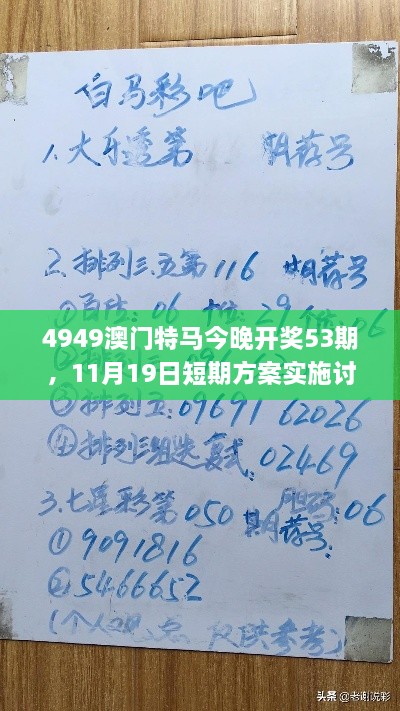 白马彩吧
1.大乐透第 期荐号
2.排列三.五第116期荐号
①百位:06 十位:29 个位:06
4949澳门特马今晚开奖53期
，11月19日短期方案实施讨
③排列五:09691 62026
④排列三组选复式:02469
3.七星彩第050期荐号: 胆码:06
①9091816
②5466652
(个人观点 仅供参考)
头条 @老谢说彩